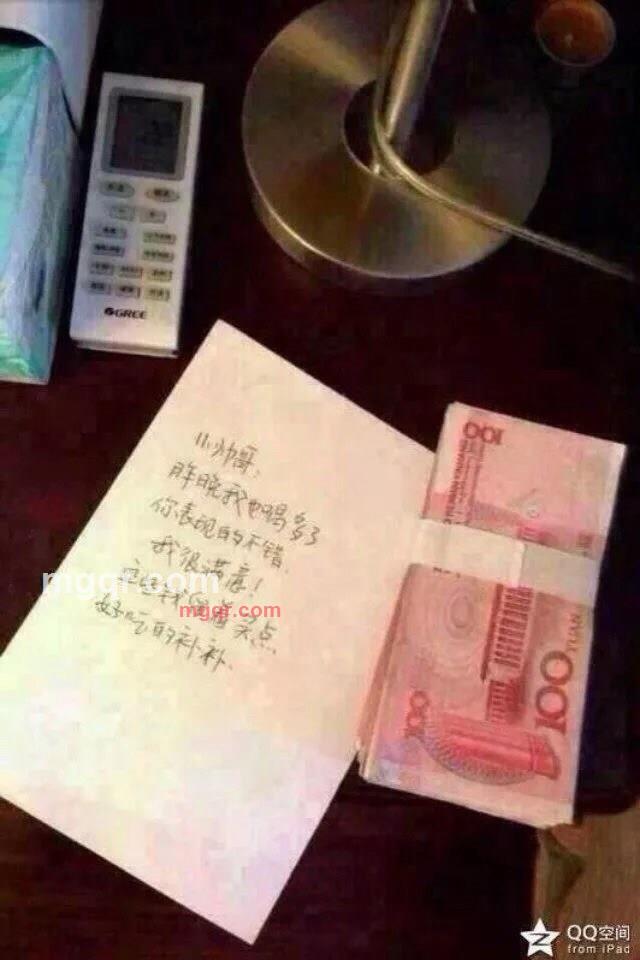 GREE
小帅哥,
昨晚我也喝多了
你表现的不错.
我很满意!
买点
好吃的补补.
mgqr.com
mgqr.com
100
100
YUAN
100
QQ空间
from iPad